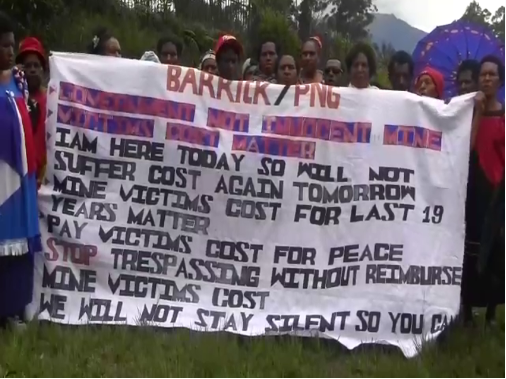 BARRICK/PNG
GOVERNMENT NOT INNOCENT MINE
VICTIMS COST MATTER
I AM HERE TODAY SO WILL NOT
SUFFER COST AGAIN TOMORROW
MINE VICTIMS COST FOR LAST 19
YEARS MATTER
PAY VICTIMS COST FOR PEACE
STOP TRESPASSING WITHOUT REIMBURSE
MINE VICTIMS COST
WE WILL NOT STAY SILENT SO YOU CA